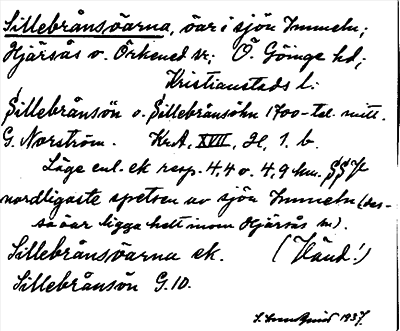 Sillebrånsöarna, öar i sjön Immeln;
Hjärsås o. Örkened sr; Ö. Göinge hd;
Kristianstads l.
Sillebrånsön o. Sillebrånsöhn 1700-tal. mitt.
G. Norström. KrA, XVII, H, 1. b.
Läge enl. ek resp. 4,4 o. 4,9 km. SSV
nordligaste spetsen av sjön Immeln (des-
sa öar ligga helt inom Hjärsås sn).
Sillebrånsöarna ek. (Vänd!)
Sillebrånsön G. 10.
1937.